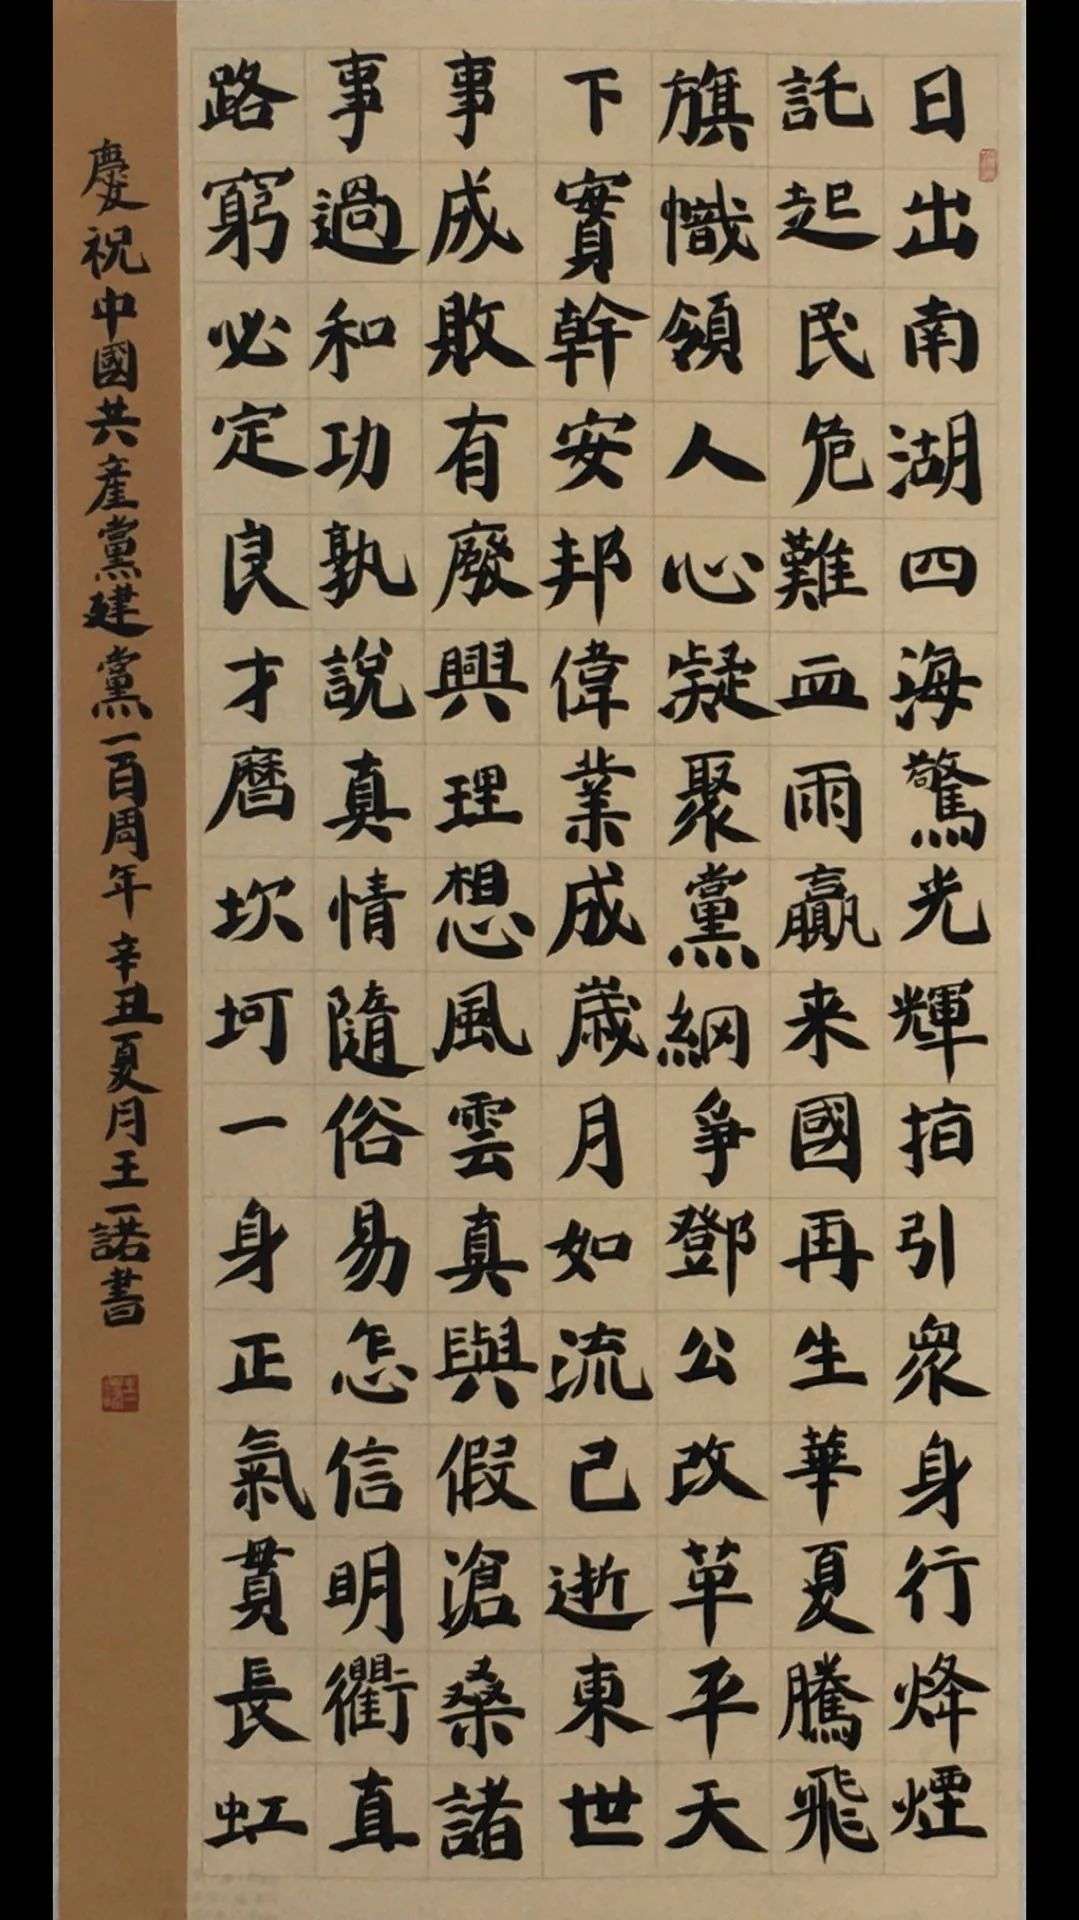 日出南湖四海驚光輝拍引眾身行烽煙
託起民危難血雨贏来國再生華夏騰飛
旗幟領人心凝聚黨綱爭鄧公改革平天
下實幹安邦偉業成歲月如流己逝東世
事成敗有廢興理想風雲真與假滄桑諸
事過和功孰說真情隨俗易怎信明衢直
路窮必定良才曆坎坷一身正氣貫長虹
慶祝中國共產黨建黨一百周年 辛丑夏月王一諾書